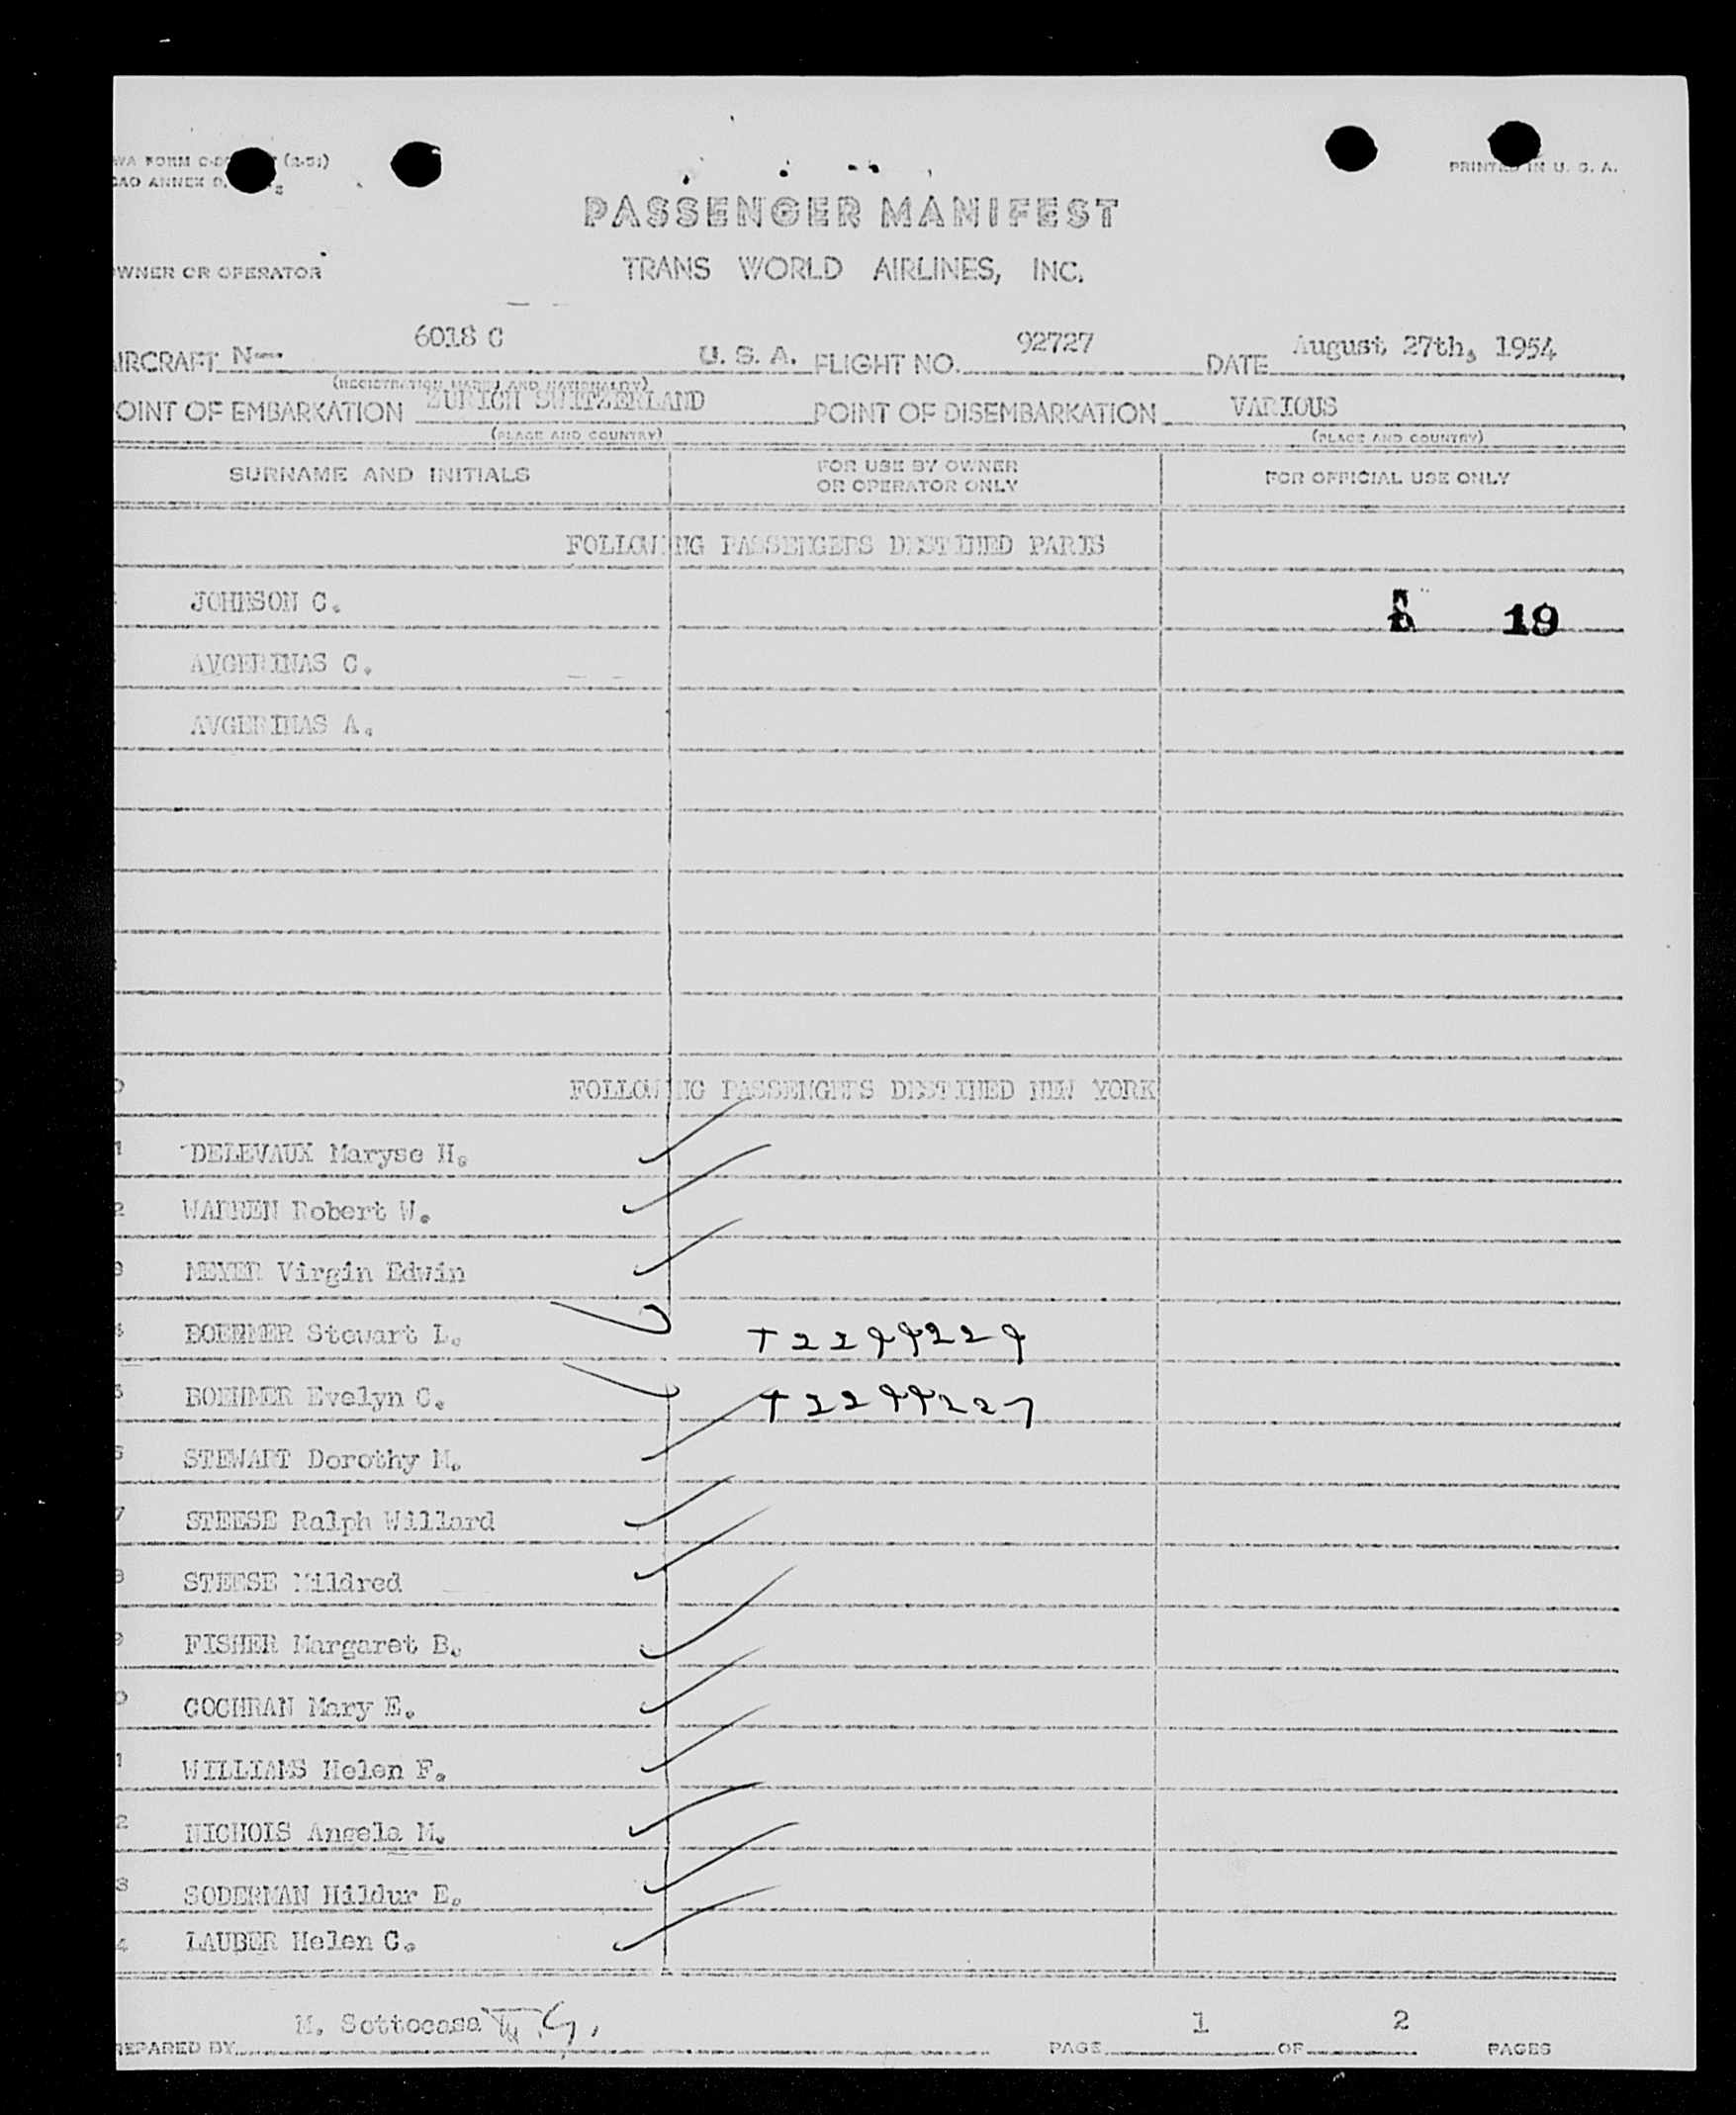 WA FORM C- (2-51)
CAO ANNEX 9,
PRINTED IN U. S. A.
PASSENGER MANIFEST
WNER OR OPERATOR
TRANS WORLD AIRLINES, INC.
IRCRAFT N-- 6018 C U. S. A. FLIGHT NO. 92727 DATE August 27th, 1954
(REGISTRATION MARKS AND NATIONALITY)
OINT OF EMBARKATION ZURICH SWITZERLAND POINT OF DISEMBARKATION VARIOUS
(PLACE AND COUNTRY) (PLACE AND COUNTRY)
SURNAME AND INITIALS FOR USE BY OWNER OR OPERATOR ONLY FOR OFFICIAL USE ONLY
FOLLOWING PASSENGERS DESTINED PARIS
JOHNSON C. 19
AVGERINAS C.
AVGERINAS A.
FOLLOWING PASSENGERS DESTINED NEW YORK
1 DELEVAUX Maryse H.
2 WARREN Robert W.
3 MEYER Virgin Edwin
4 BOEHMER Stewart L. T2299229
5 BOEHMER Evelyn C. T2299227
6 STEWART Dorothy M.
7 STEESE Ralph Willard
8 STEESE Mildred
9 FISHER Margaret B.
0 COCHRAN Mary E.
1 WILLIAMS Helen F.
2 NICHOIS Angela M.
3 SODERMAN Hildur E.
4 LAUBER Helen C.
REPARED BY M. Sottocasa PAGE 1 OF 2 PAGES